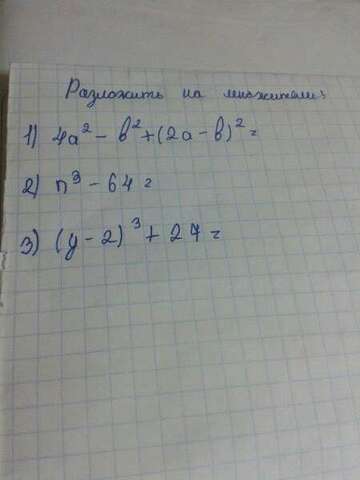 Разложить на множители:
1) 4a² - b² + (2a - b)² =
2) n³ - 64 =
3) (y - 2)³ + 27 =